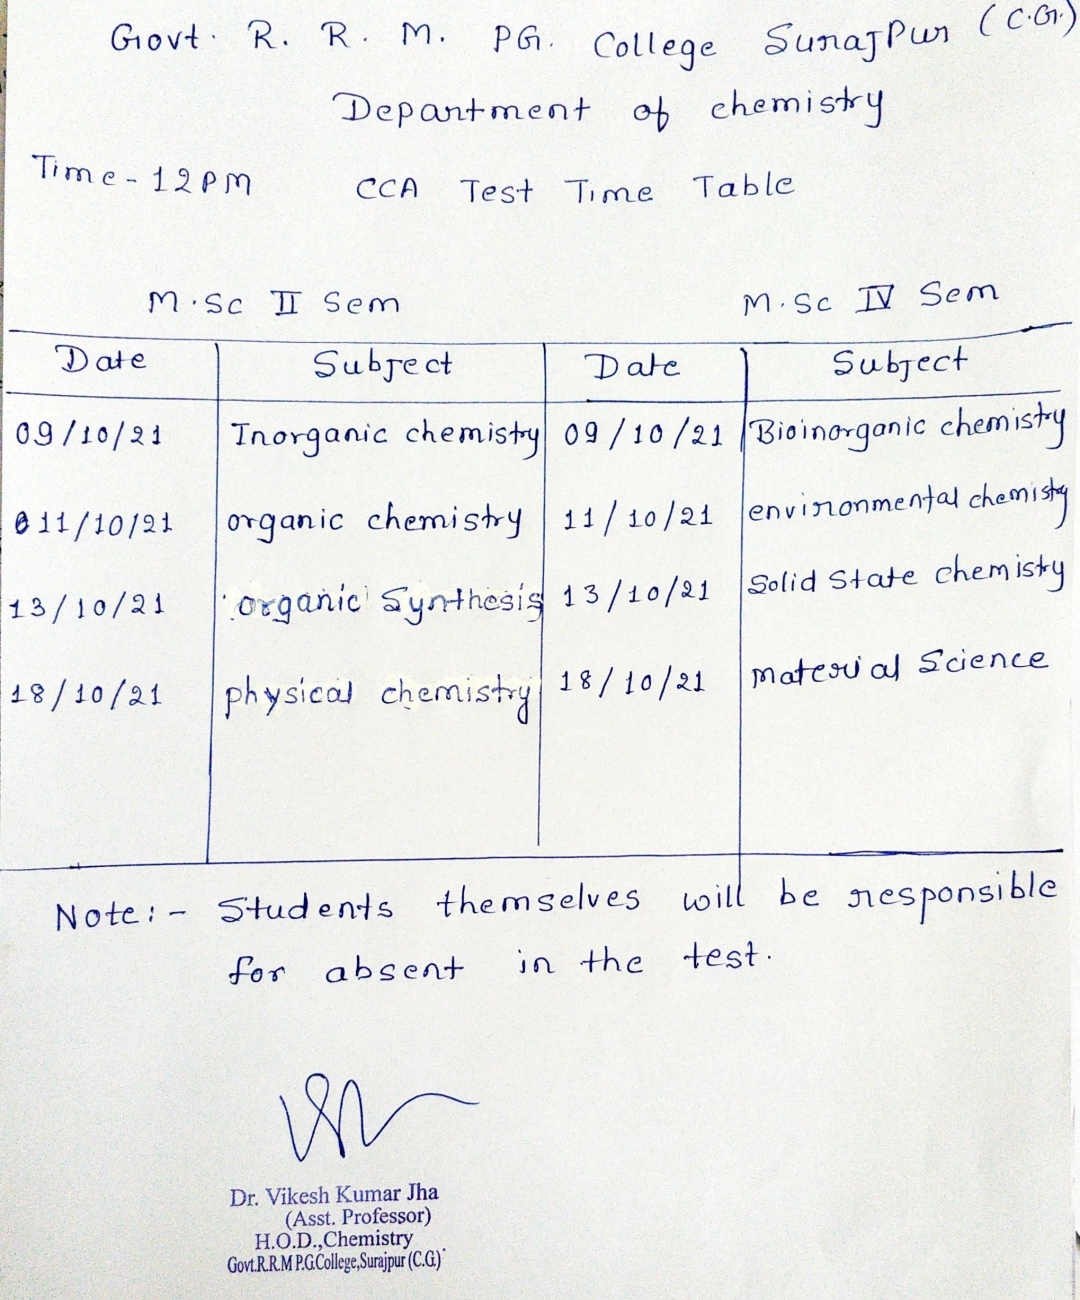 Govt. R. R. M. PG. College Surajpur (C.G.)
Department of chemistry
Time - 12 PM CCA Test Time Table
M.Sc II Sem M.Sc IV Sem
Date Subject Date Subject
09/10/21 Inorganic chemistry 09/10/21 Bioinorganic chemistry
11/10/21 organic chemistry 11/10/21 environmental chemistry
13/10/21 organic Synthesis 13/10/21 Solid State chemistry
18/10/21 physical chemistry 18/10/21 material Science
Note:- Students themselves will be responsible
for absent in the test.
Dr. Vikesh Kumar Jha
(Asst. Professor)
H.O.D.,Chemistry
Govt.R.R.M P.G.College,Surajpur (C.G.)